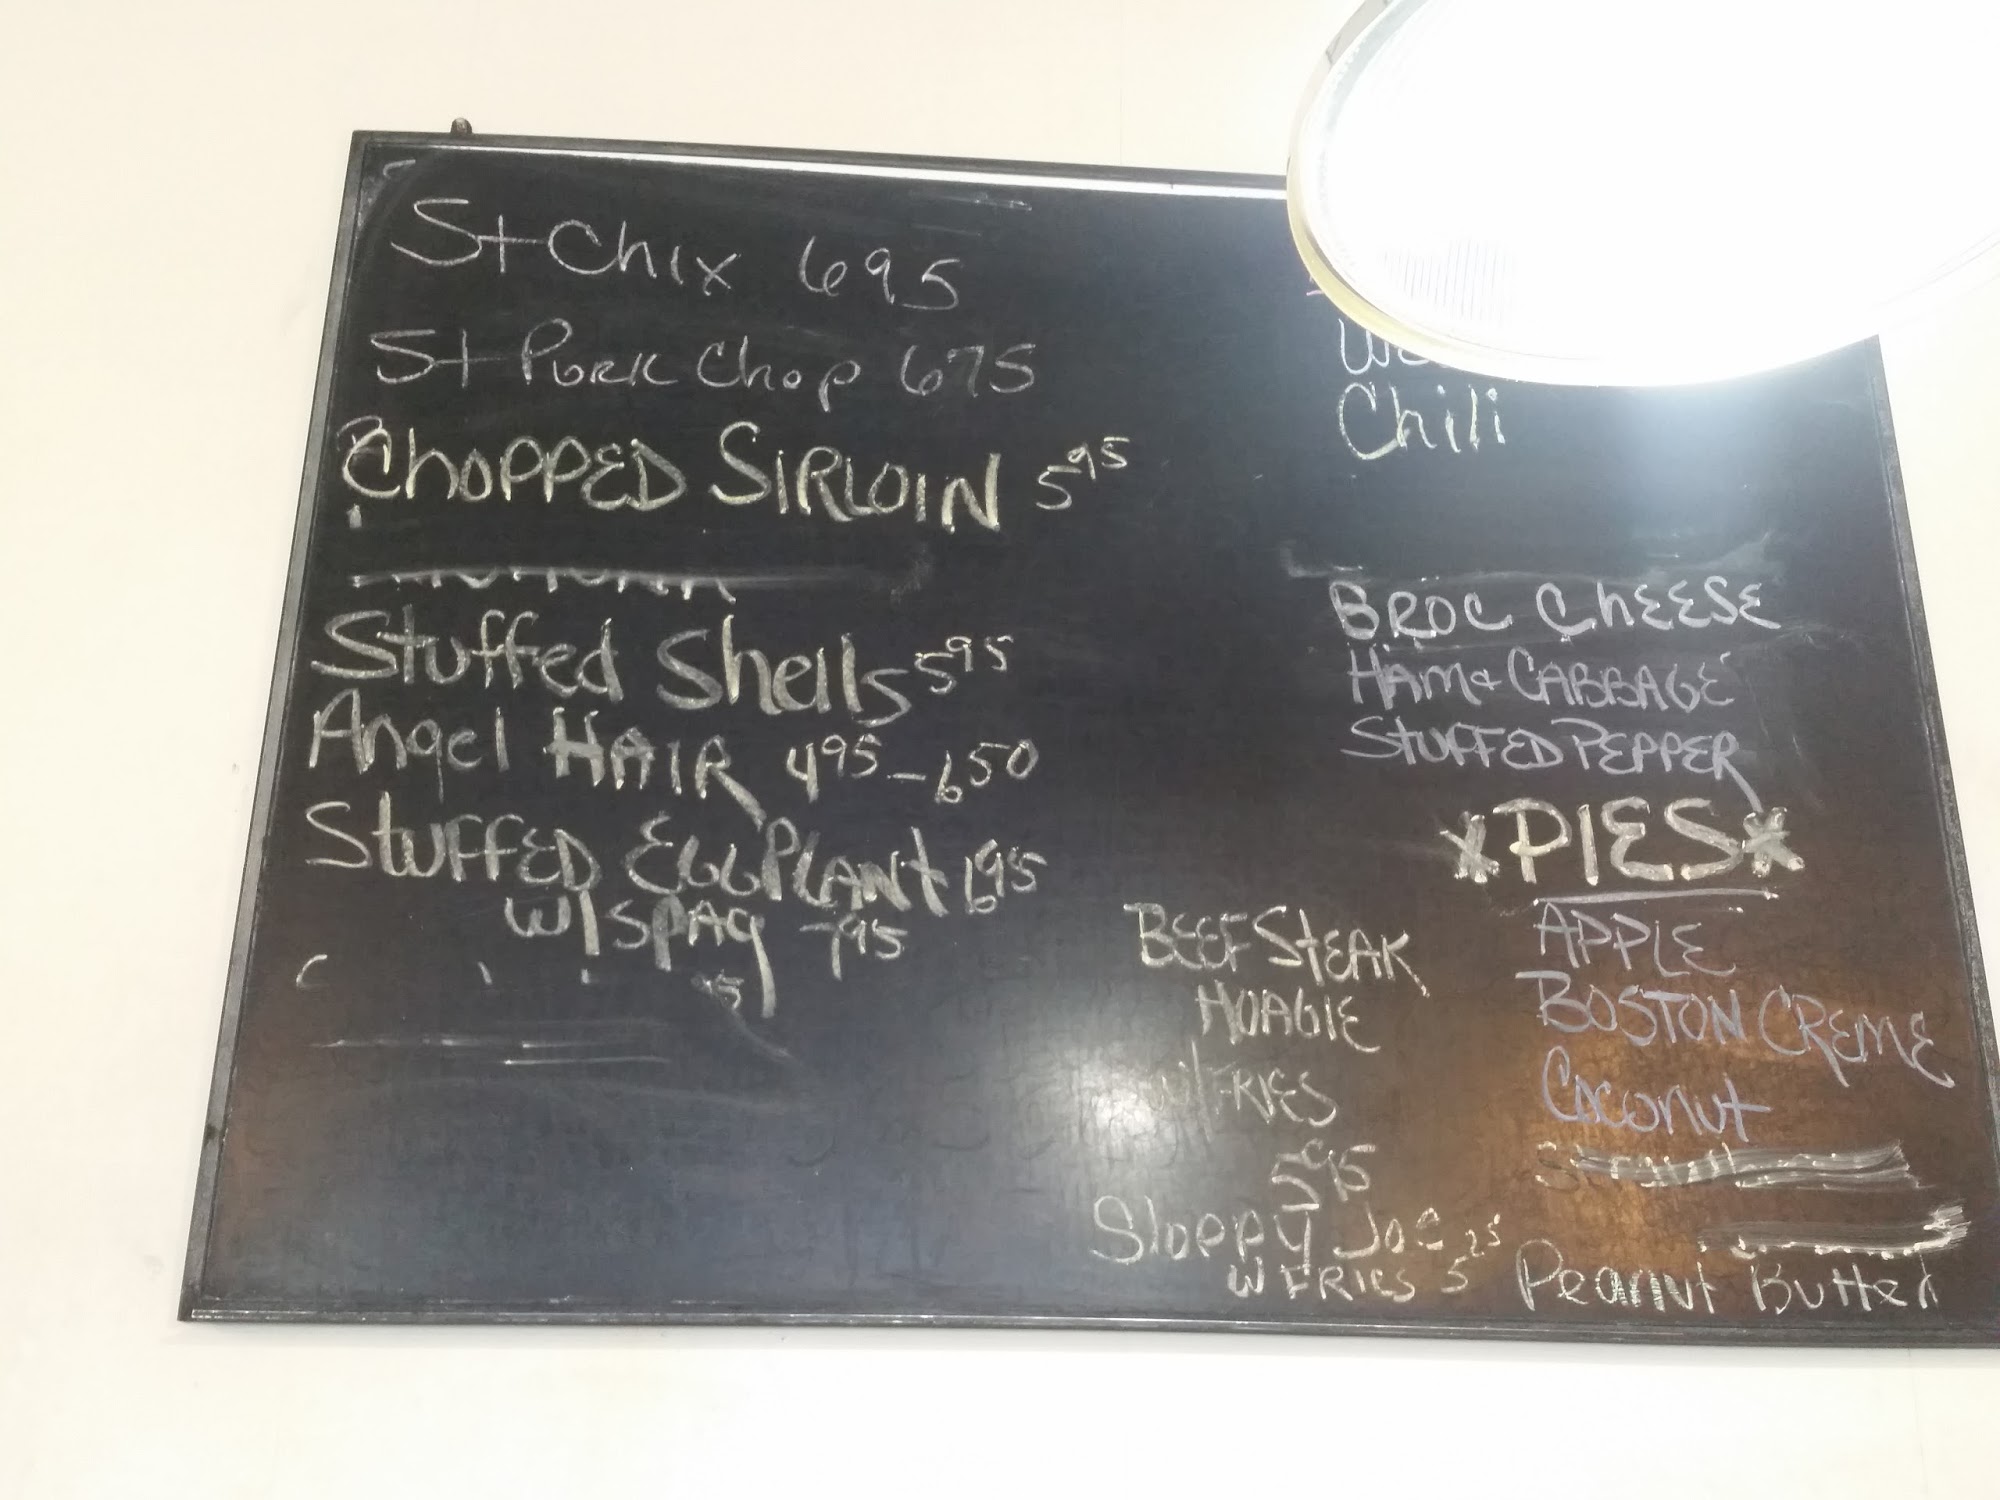 St Chix 695
St Pork Chop 675
CHOPPED SIRLOIN 5 95
Stuffed Shells 5 95
Angel HAIR 4 95 - 6 50
STUFFED EGGPLANT 6 95
W/ SPAG 7 95
Chili
BROC CHEESE
HAM & CABBAGE
STUFFED PEPPER
*PIES*
APPLE
BOSTON CREME
Coconut
Peanut Butter
BEEF STEAK
HOAGIE
W/ FRIES
5 95
Sloppy Joe
W FRIES 5 25